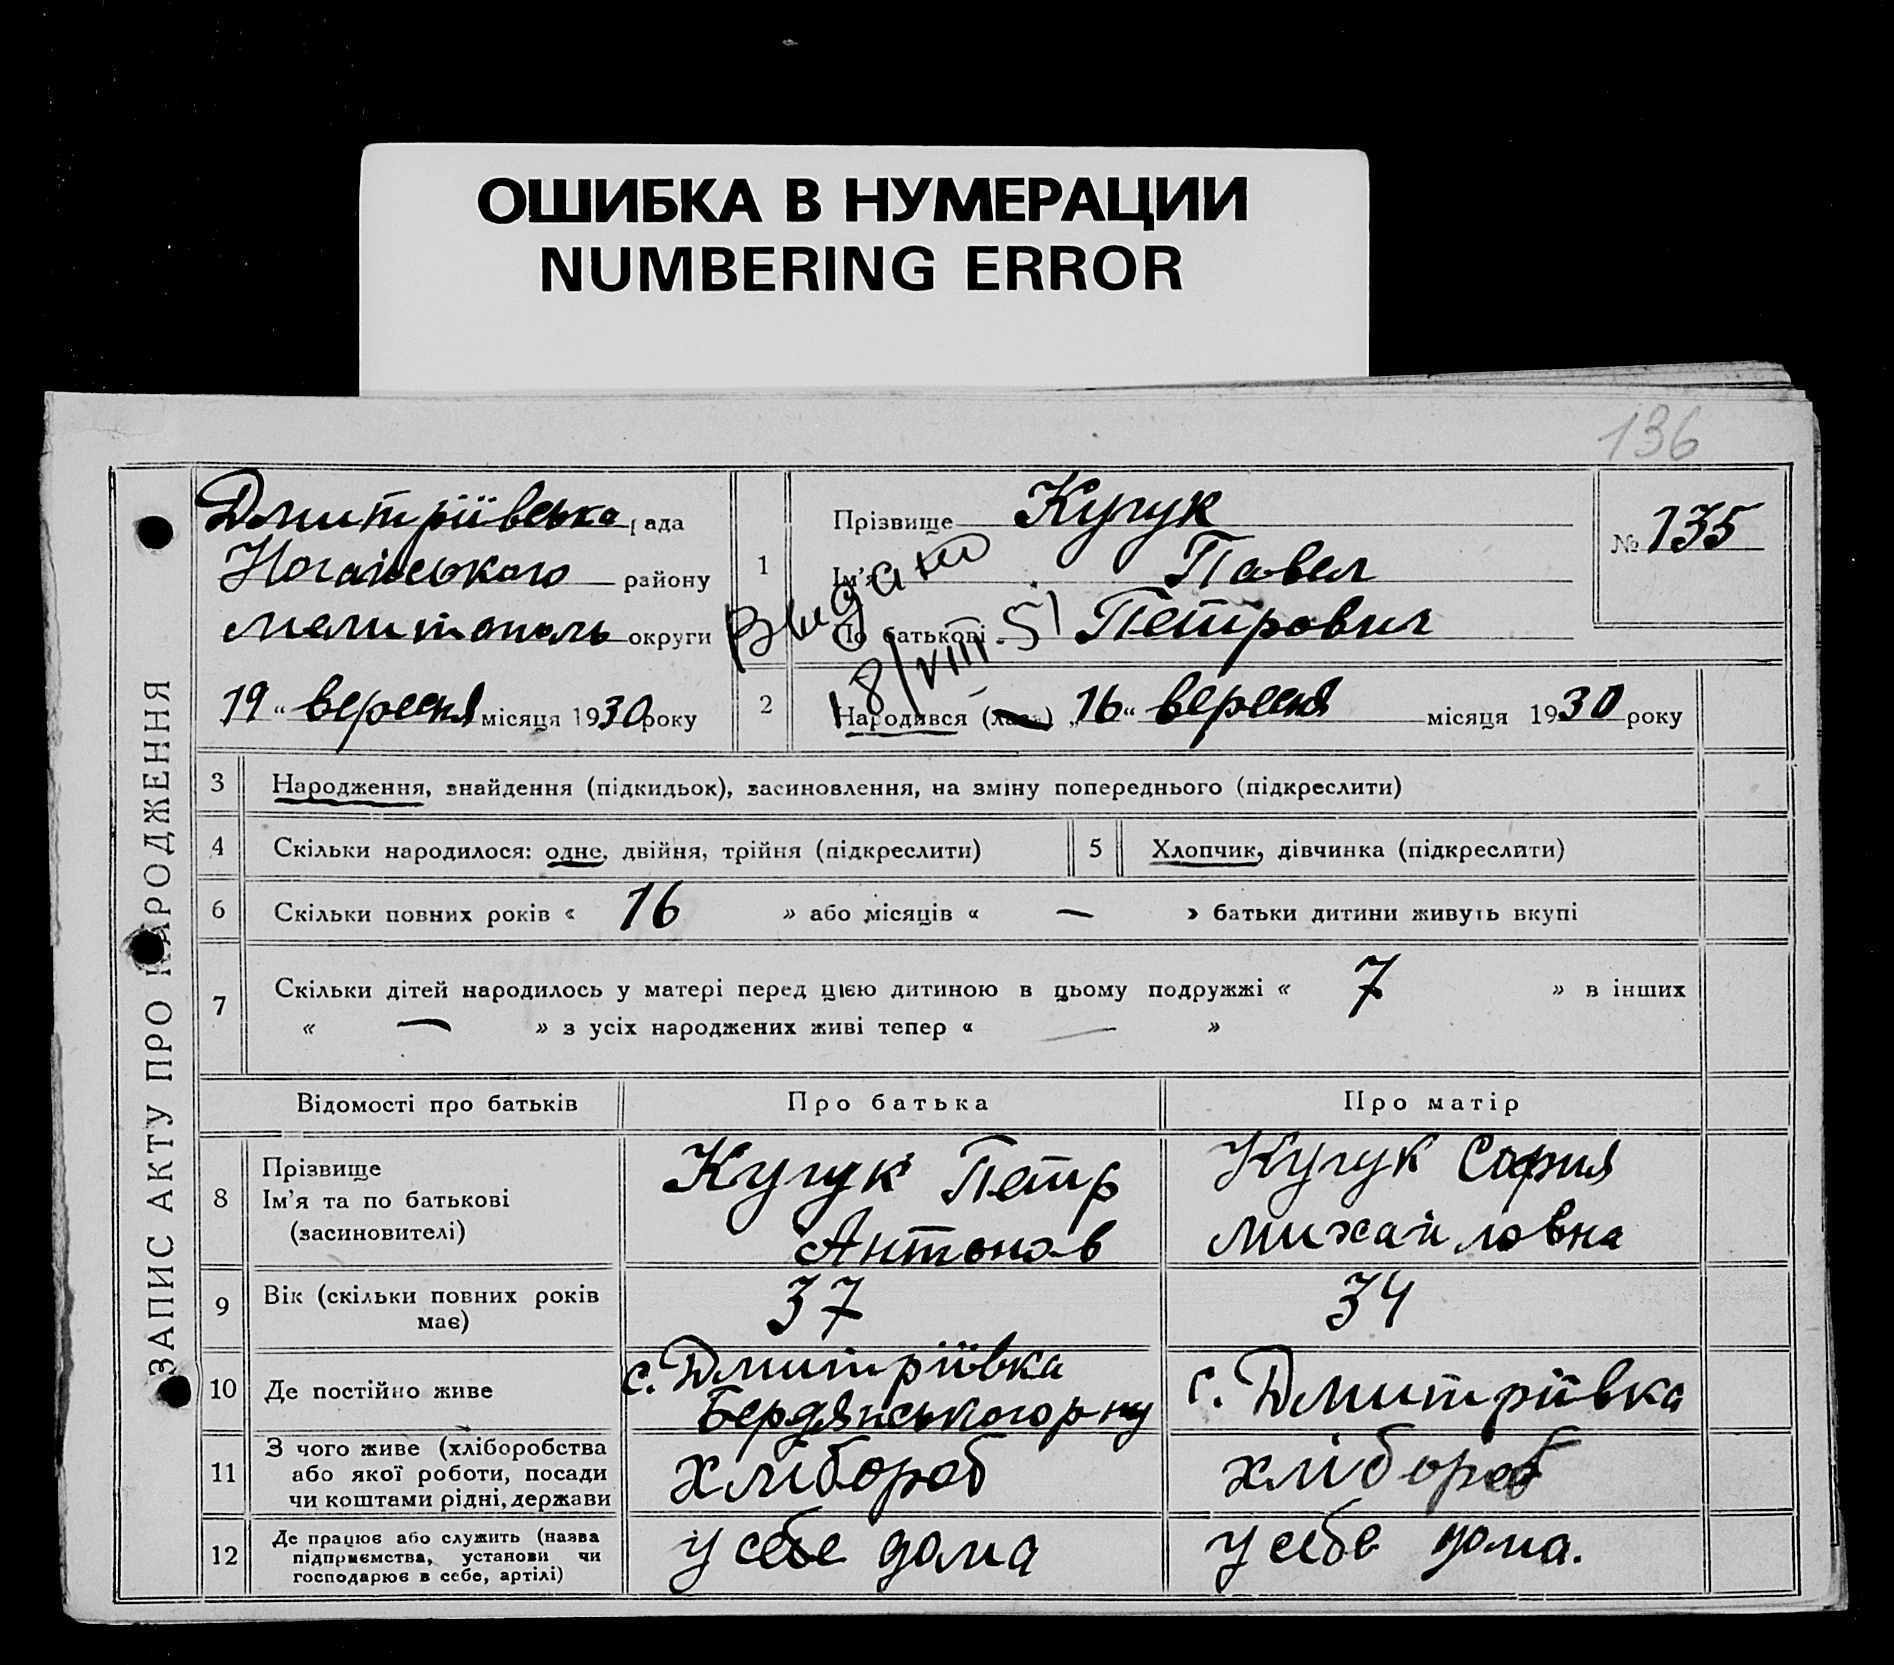 ОШИБКА В НУМЕРАЦИИ
NUMBERING ERROR
136
ЗАПИС АКТУ ПРО НАРОДЖЕННЯ
Дмитріївська рада
Ногайського району
Мелитополь округи
19 " вересня місяця 1930 року
1
Прізвище Кучук
Ім'я Павел
По батькові Петрович
№ 135
Видано
18/VIII-51
2
Народився (лась) „16" вересня місяця 1930 року
3 Народження, знайдення (підкидьок), засиновлення, на зміну попереднього (підкреслити)
4 Скільки народилося: одне, двійня, трійня (підкреслити) 5 Хлопчик, дівчинка (підкреслити)
6 Скільки повних років « 16 » або місяців « — » батьки дитини живуть вкупі
7 Скільки дітей народилось у матері перед цією дитиною в цьому подружжі « 7 » в інших
« — » з усіх народжених живі тепер « — »
Відомості про батьків Про батька Про матір
8 Прізвище
Ім'я та по батькові
(засиновителі)
Кучук Петр
Антонов
Кучук София
Михайловна
9 Вік (скільки повних років
має)
37
34
10 Де постійно живе
с. Дмитріївка
Бердянського р-ну
с. Дмитріївка
11 З чого живе (хліборобства
або якої роботи, посади
чи коштами рідні, держави
хлібороб
хлібороб
12 Де працює або служить (назва
підприємства, установи чи
господарює в себе, артілі)
у себе дома
у себе дома.